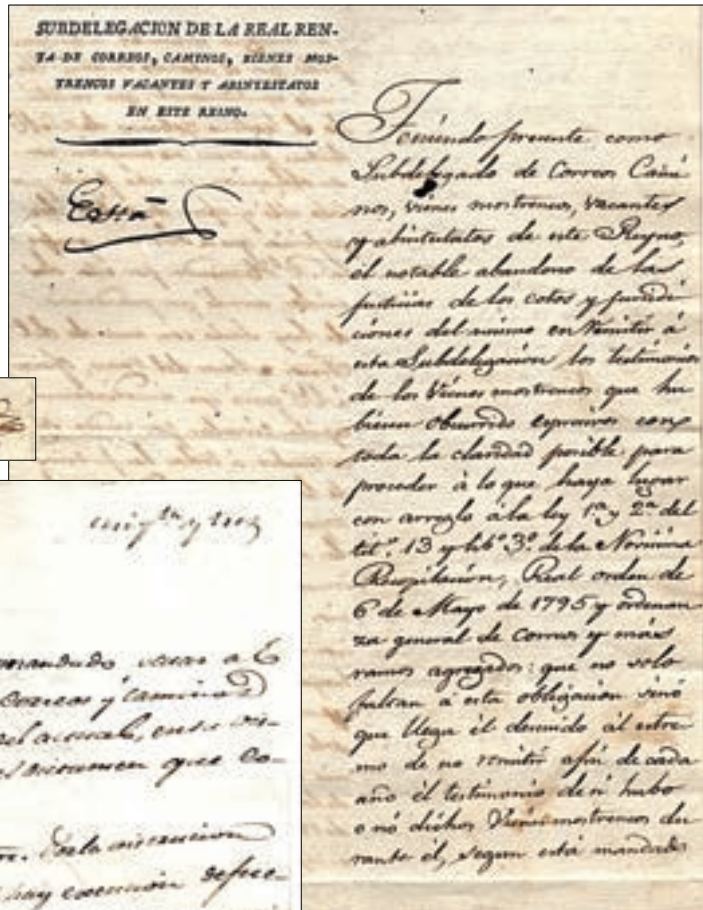 SUBDELEGACION DE LA REAL REN-
TA DE CORREOS, CAMINOS, BIENES MOS-
TRENCOS VACANTES Y ABINTESTATOS
EN ESTE REINO.
Teniendo presente como
Subdelegado de Correos Cami
nos, vienes mostrencos, vacantes
y abintestatos de este Reyno,
el notable abandono de las
justicias de los cotos y jurisdi
ciones del mismo en remitir á
esta Subdelegacion los testimonios
de los Vienes mostrencos que hu
biesen ocurrido expresivos con
toda la claridad posible para
proceder á lo que haya lugar
con arreglo á la ley 1ª y 2ª del
tit.º 13 y lib.º 3º de la Novisima
Recopilacion, Real orden de
6 de Mayo de 1795 y ordenan
za general de correos y más
ramos agregados: que no solo
faltan á esta obligacion sinó
que llega él descuido al estre
mo de no remitir afin de cada
año él testimonio de si hubo
o nó dichos Vienes mostrencos du
rante él, segun está mandado
correos y caminos
el actual, en su
que co-
hay